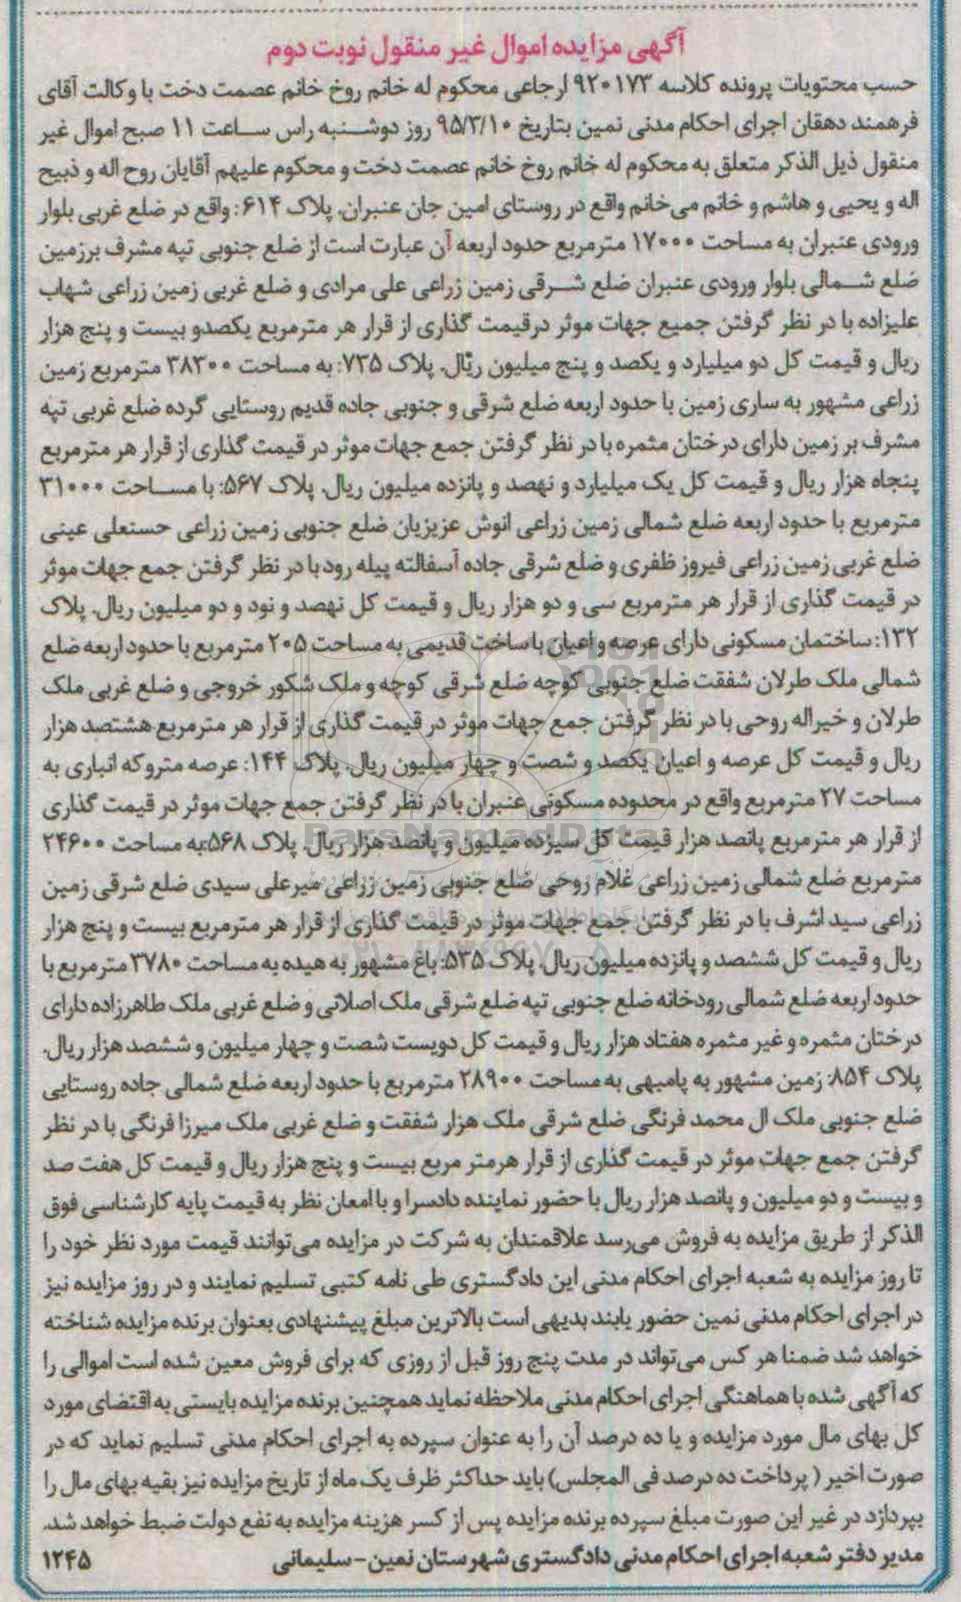 آگهی مزایده اموال غیر منقول نوبت دوم
حسب محتویات پرونده کلاسه ۹۲۰۱۷۳ ارجاعی محکوم له خانم روخ خانم عصمت دخت با وکالت آقای
فرهمند دهقان اجرای احکام مدنی نمین بتاریخ ۹۵/۳/۱۰ روز دوشنبه راس ساعت ۱۱ صبح اموال غیر
منقول ذیل الذکر متعلق به محکوم له خانم روخ خانم عصمت دخت و محکوم علیهم آقایان روح اله و ذبیح
اله و یحیی و هاشم و خانم می‌خانم واقع در روستای امین جان عنبران. پلاک ۶۱۴: واقع در ضلع غربی بلوار
ورودی عنبران به مساحت ۱۷۰۰۰ مترمربع حدود اربعه آن عبارت است از ضلع جنوبی تپه مشرف برزمین
ضلع شمالی بلوار ورودی عنبران ضلع شرقی زمین زراعی علی مرادی و ضلع غربی زمین زراعی شهاب
علیزاده با در نظر گرفتن جمیع جهات موثر درقیمت گذاری از قرار هر مترمربع یکصدو بیست و پنج هزار
ریال و قیمت کل دو میلیارد و یکصد و پنج میلیون ریال. پلاک ۷۳۵: به مساحت ۳۸۳۰۰ مترمربع زمین
زراعی مشهور به ساری زمین با حدود اربعه ضلع شرقی و جنوبی جاده قدیم روستایی گرده ضلع غربی تپه
مشرف بر زمین دارای درختان مثمره با در نظر گرفتن جمع جهات موثر در قیمت گذاری از قرار هر مترمربع
پنجاه هزار ریال و قیمت کل یک میلیارد و نهصد و پانزده میلیون ریال. پلاک ۵۶۷: با مساحت ۳۱۰۰۰
مترمربع با حدود اربعه ضلع شمالی زمین زراعی انوش عزیزیان ضلع جنوبی زمین زراعی حسنعلی عینی
ضلع غربی زمین زراعی فیروز ظفری و ضلع شرقی جاده آسفالته پیله رود با در نظر گرفتن جمع جهات موثر
در قیمت گذاری از قرار هر مترمربع سی و دو هزار ریال و قیمت کل نهصد و نود و دو میلیون ریال. پلاک
۱۳۲: ساختمان مسکونی دارای عرصه و اعیان با ساخت قدیمی به مساحت ۲۰۵ مترمربع با حدود اربعه ضلع
شمالی ملک طرلان شفقت ضلع جنوبی کوچه ضلع شرقی کوچه و ملک شکور خروجی و ضلع غربی ملک
طرلان و خیراله روحی با در نظر گرفتن جمع جهات موثر در قیمت گذاری از قرار هر مترمربع هشتصد هزار
ریال و قیمت کل عرصه و اعیان یکصد و شصت و چهار میلیون ریال. پلاک ۱۴۴: عرصه متروکه انباری به
مساحت ۲۷ مترمربع واقع در محدوده مسکونی عنبران با در نظر گرفتن جمع جهات موثر در قیمت گذاری
از قرار هر مترمربع پانصد هزار قیمت کل سیزده میلیون و پانصد هزار ریال. پلاک ۵۶۸:به مساحت ۲۴۶۰۰
مترمربع ضلع شمالی زمین زراعی غلام روحی ضلع جنوبی زمین زراعی میرعلی سیدی ضلع شرقی زمین
زراعی سید اشرف با در نظر گرفتن جمع جهات موثر در قیمت گذاری از قرار هر مترمربع بیست و پنج هزار
ریال و قیمت کل ششصد و پانزده میلیون ریال. پلاک ۵۳۵: باغ مشهور به هیده به مساحت ۳۷۸۰ مترمربع با
حدود اربعه ضلع شمالی رودخانه ضلع جنوبی تپه ضلع شرقی ملک اصلانی و ضلع غربی ملک طاهرزاده دارای
درختان مثمره و غیر مثمره هفتاد هزار ریال و قیمت کل دویست شصت و چهار میلیون و ششصد هزار ریال.
پلاک ۸۵۴: زمین مشهور به پامبهی به مساحت ۲۸۹۰۰ مترمربع با حدود اربعه ضلع شمالی جاده روستایی
ضلع جنوبی ملک ال محمد فرنگی ضلع شرقی ملک هزار شفقت و ضلع غربی ملک میرزا فرنگی با در نظر
گرفتن جمع جهات موثر در قیمت گذاری از قرار هرمتر مربع بیست و پنج هزار ریال و قیمت کل هفت صد
و بیست و دو میلیون و پانصد هزار ریال با حضور نماینده دادسرا و با امعان نظر به قیمت پایه کارشناسی فوق
الذکر از طریق مزایده به فروش می‌رسد علاقمندان به شرکت در مزایده می‌توانند قیمت مورد نظر خود را
تا روز مزایده به شعبه اجرای احکام مدنی این دادگستری طی نامه کتبی تسلیم نمایند و در روز مزایده نیز
در اجرای احکام مدنی نمین حضور یابند بدیهی است بالاترین مبلغ پیشنهادی بعنوان برنده مزایده شناخته
خواهد شد ضمنا هر کس می‌تواند در مدت پنج روز قبل از روزی که برای فروش معین شده است اموالی را
که آگهی شده با هماهنگی اجرای احکام مدنی ملاحظه نماید همچنین برنده مزایده بایستی به اقتضای مورد
کل بهای مال مورد مزایده و یا ده درصد آن را به عنوان سپرده به اجرای احکام مدنی تسلیم نماید که در
صورت اخیر ( پرداخت ده درصد فی المجلس) باید حداکثر ظرف یک ماه از تاریخ مزایده نیز بقیه بهای مال را
بپردازد در غیر این صورت مبلغ سپرده برنده مزایده پس از کسر هزینه مزایده به نفع دولت ضبط خواهد شد.
مدیر دفتر شعبه اجرای احکام مدنی دادگستری شهرستان نمین - سلیمانی ۱۲۴۵
ParsNamadData